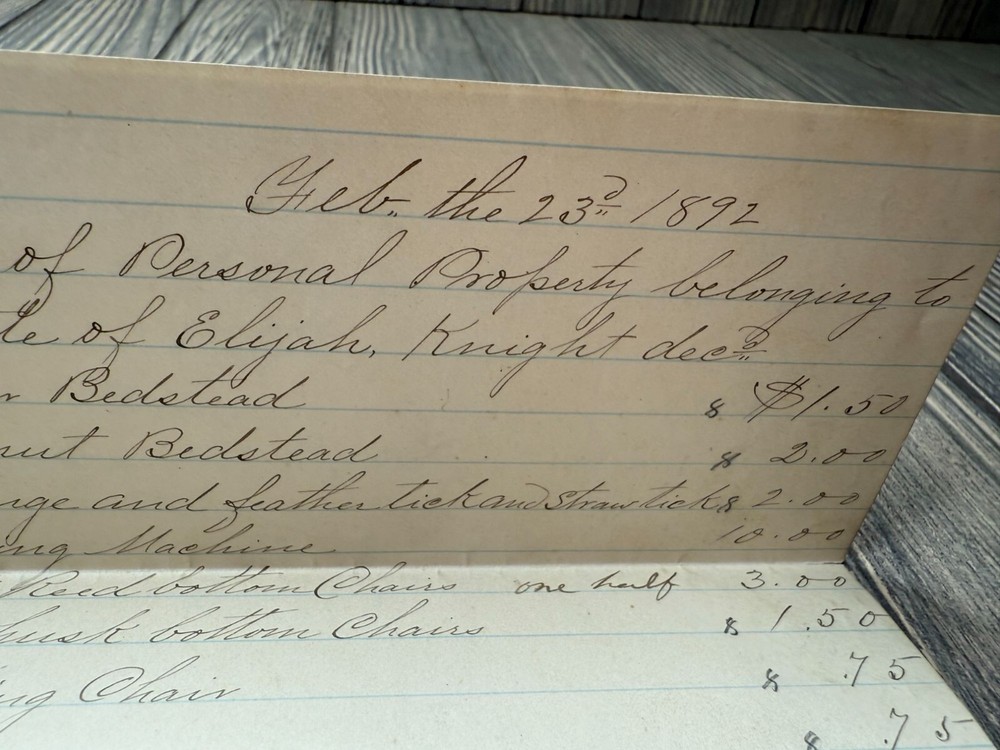 Feb. the 23d 1892
of Personal Property belonging to
te of Elijah, Knight decd
Bedstead 8 $1.50
nut Bedstead 8 2.00
nge and feather tick and Straw tick 8 2.00
ing Machine 10.00
Reed bottom Chairs one half 3.00
husk bottom Chairs 8 1.50
ing Chair 8 .75
8 .75